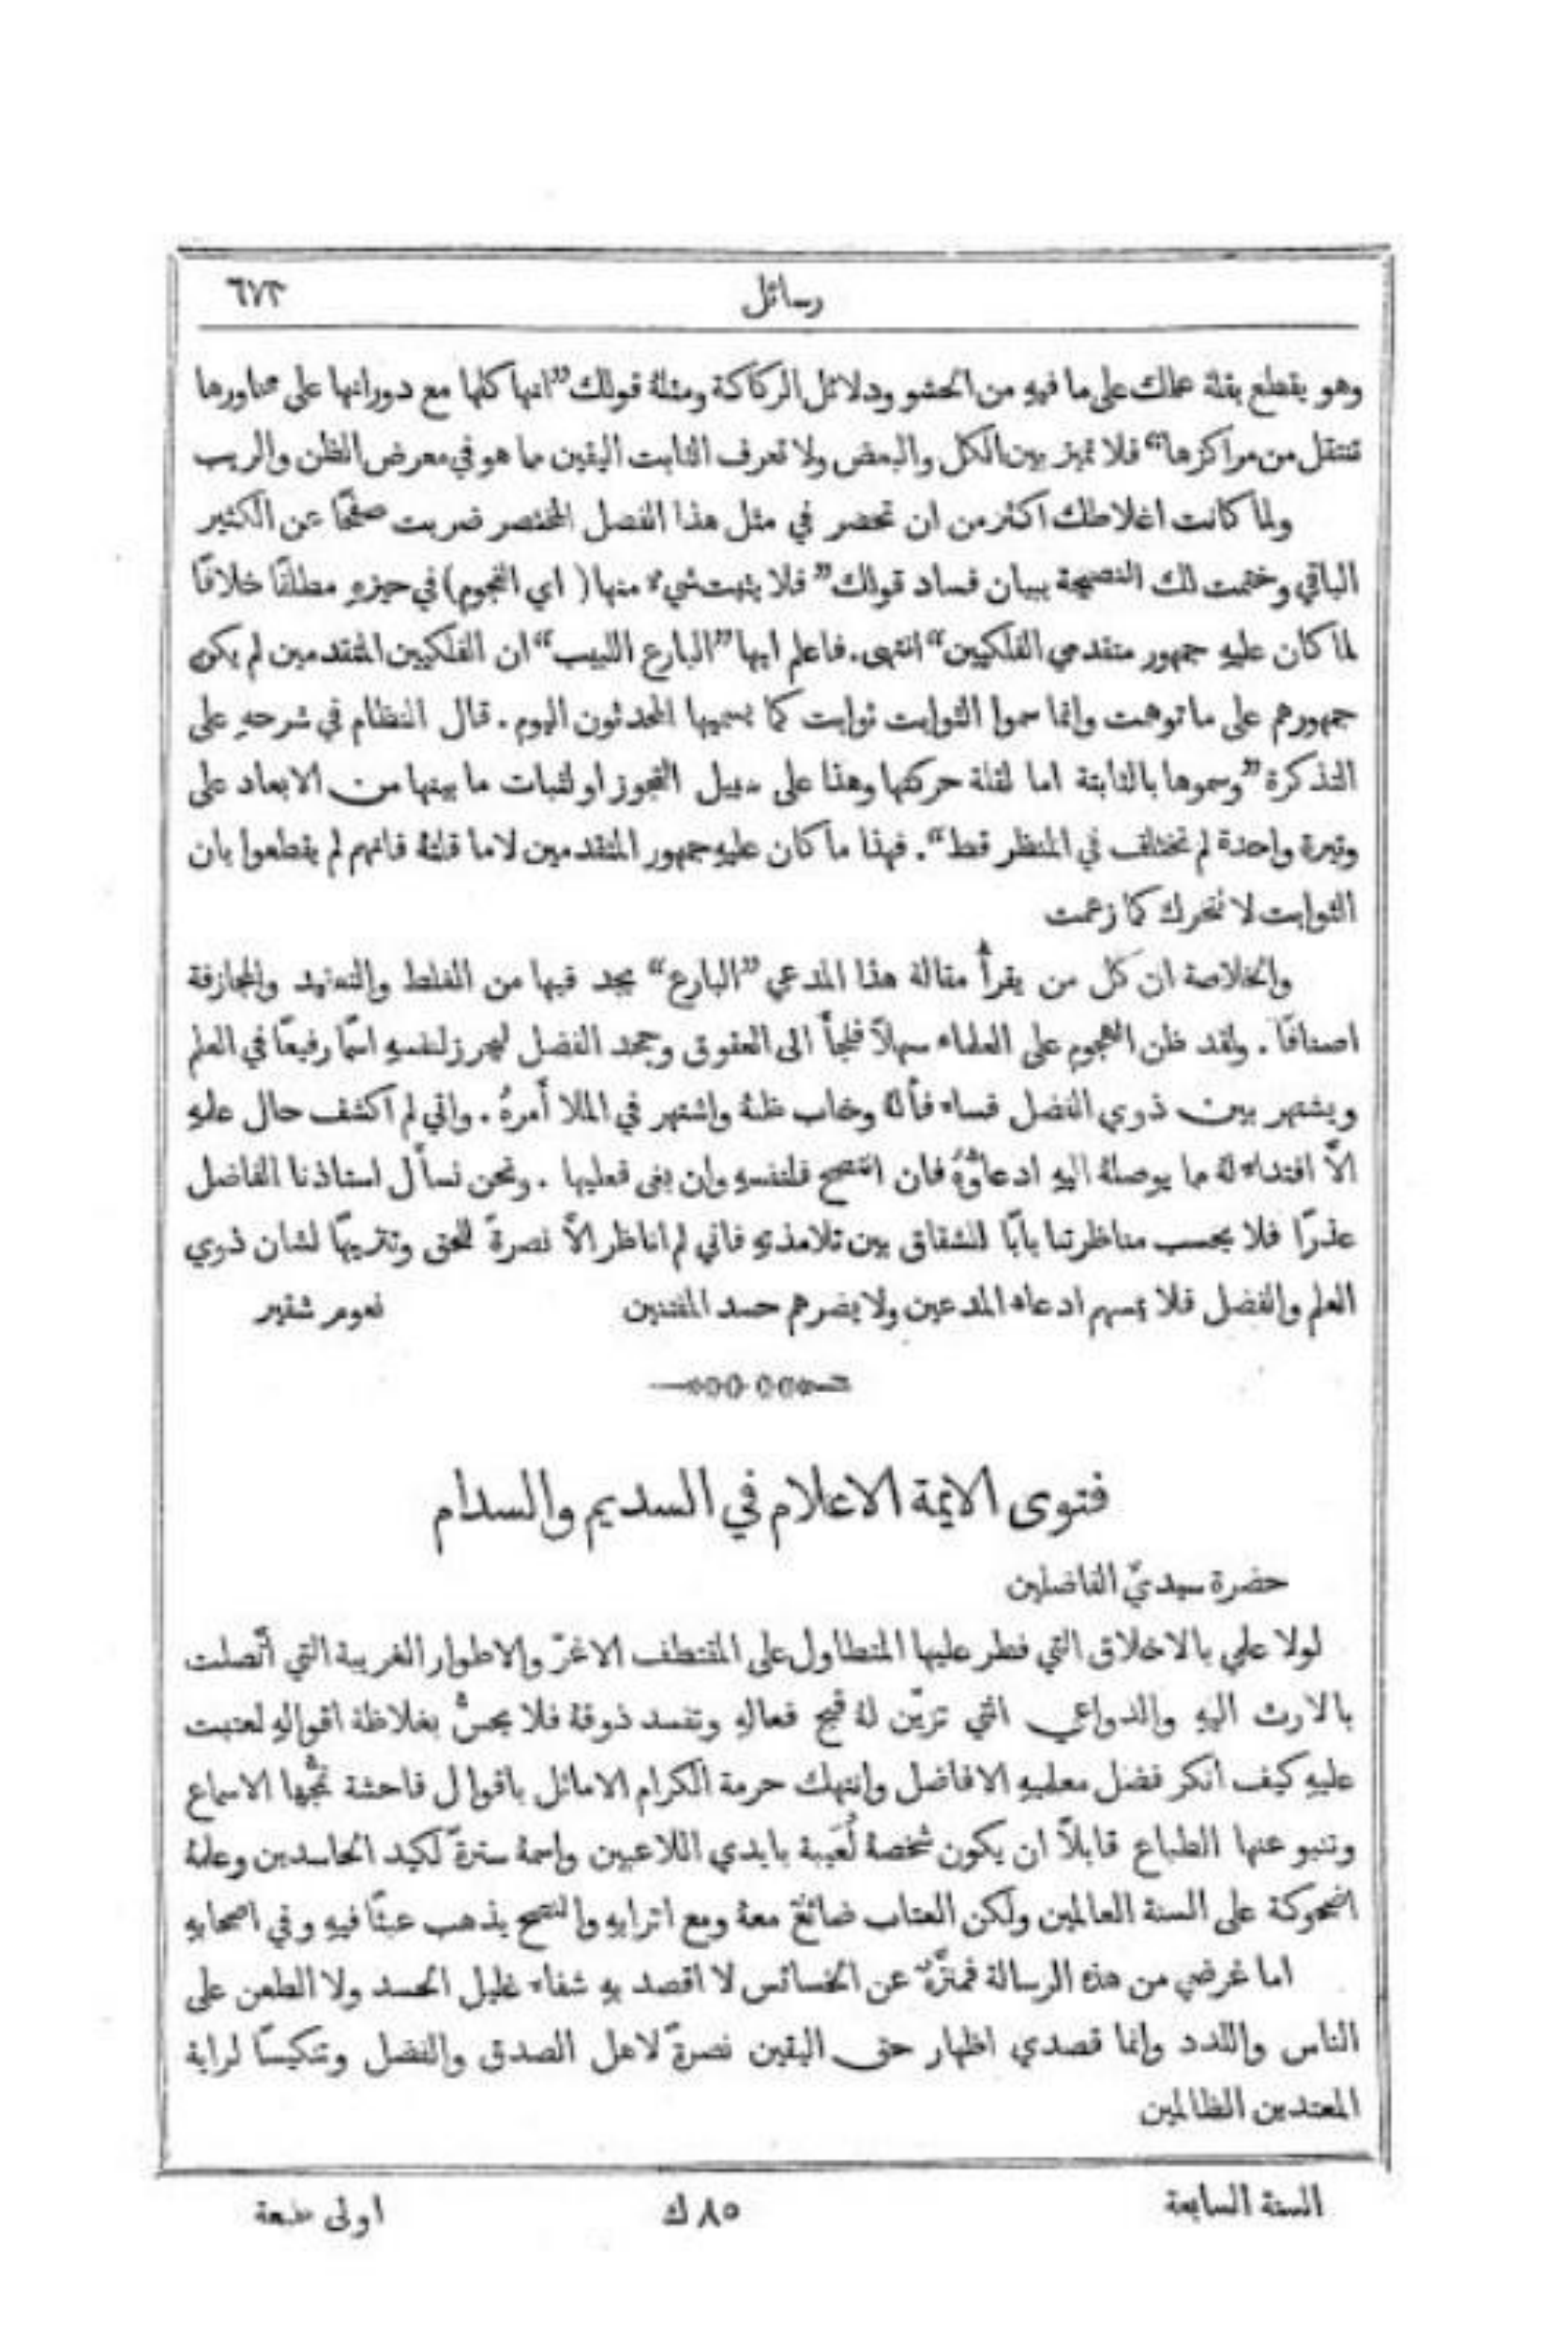 رسائل ٦٧٣
وهو يقطع بقلة علمك على ما فيهِ من الحشو ودلائل الركاكة ومثلهُ قولك ”انها كلها مع دورانها على محاورها
تنتقل من مراكزها“ فلا تميز بين الكل والبعض ولا تعرف الثابت اليقين مما هو في معرض الظن والريب
ولما كانت اغلاطك اكثر من ان تحصر في مثل هذا الفصل المختصر ضربت صفحًا عن الكثير
الباقي وختمت لك النصيحة ببيان فساد قولك ”فلا يثبت شيءٌ منها (اي النجوم) في حيزهِ مطلقًا خلافًا
لما كان عليهِ جمهور متقدمي الفلكيين“ انتهى. فاعلم ايها ”البارع اللبيب“ ان الفلكيين المتقدمين لم يكن
جمهورهم على ما توهمت وانما سموا الثوابت ثوابت كما يسميها المحدثون اليوم. قال النظام في شرحهِ على
التذكرة ”وسموها بالثابتة اما لقلة حركتها وهذا على سبيل التجوز او لثبات ما بينها من الابعاد على
وتيرة واحدة لم تختلف في المنظر قط“. فهذا ما كان عليهِ جمهور المتقدمين لا ما قلتهُ فانهم لم يقطعوا بان
الثوابت لا تتحرك كما زعمت
والخلاصة ان كل من يقرأُ مقالة هذا المدعي ”البارع“ يجد فيها من الغلط والتعنيد والمجازفة
اصنافًا. ولقد ظن الهجوم على العلماء سهلاً فلجأ الى العقوق وجحد الفضل ليحرز لنفسهِ اسمًا رفيعًا في العلم
ويشتهر بين ذوي الفضل فساء فألهُ وخاب ظنهُ واشتهر في الملا أمرهُ. واني لم اكشف حال علمهِ
الاَّ افتداء لهُ مما يوصلهُ اليهِ ادعاؤُهُ فان انتصح فلنفسهِ وان بغى فعليها. ونحن نسأل استاذنا الفاضل
عذرًا فلا يحسب مناظرتنا بابًا للشقاق بين تلامذتهِ فاني لم اناظر الاَّ نصرةً للحق وتنزيهًا لشان ذوي
العلم والفضل فلا يمسهم ادعاء المدعين ولا يضرهم حسد المفتنين نعوم شقير
فتوى الايمة الاعلام في السديم والسدام
حضرة سيديَّ الفاضلين
لولا علمي بالاخلاق التي فطر عليها المتطاول على المقتطف الاغرّ والاطوار الغريبة التي اتّصلت
بالارث اليهِ والدواعي التي تزيّن لهُ قبح فعالهِ وتفسد ذوقهُ فلا يحسُّ بغلاظة اقوالهِ لعتبت
عليهِ كيف انكر فضل معلميهِ الافاضل وانتهك حرمة الكرام الاماثل باقوال فاحشة تمجُّها الاسماع
وتنبو عنها الطباع قابلاً ان يكون شخصهُ لُعَيبة بايدي اللاعبين واسمهُ سترةً لكيد الحاسدين وعلمهُ
اضحوكة على السنة العالمين ولكن العتاب ضائعٌ معهُ ومع اترابهِ والنصح يذهب عبثًا فيهِ وفي اصحابهِ
اما غرضي من هذه الرسالة فمنزّهٌ عن الخسائس لا اقصد بهِ شفاء غليل الحسد ولا الطعن على
الناس واللدد وانما قصدي اظهار حق اليقين نصرةً لاهل الصدق والفضل وتنكيسًا لراية
المعتدين الظالمين
السنة السابعة ٨٥ ك اولى طبعة